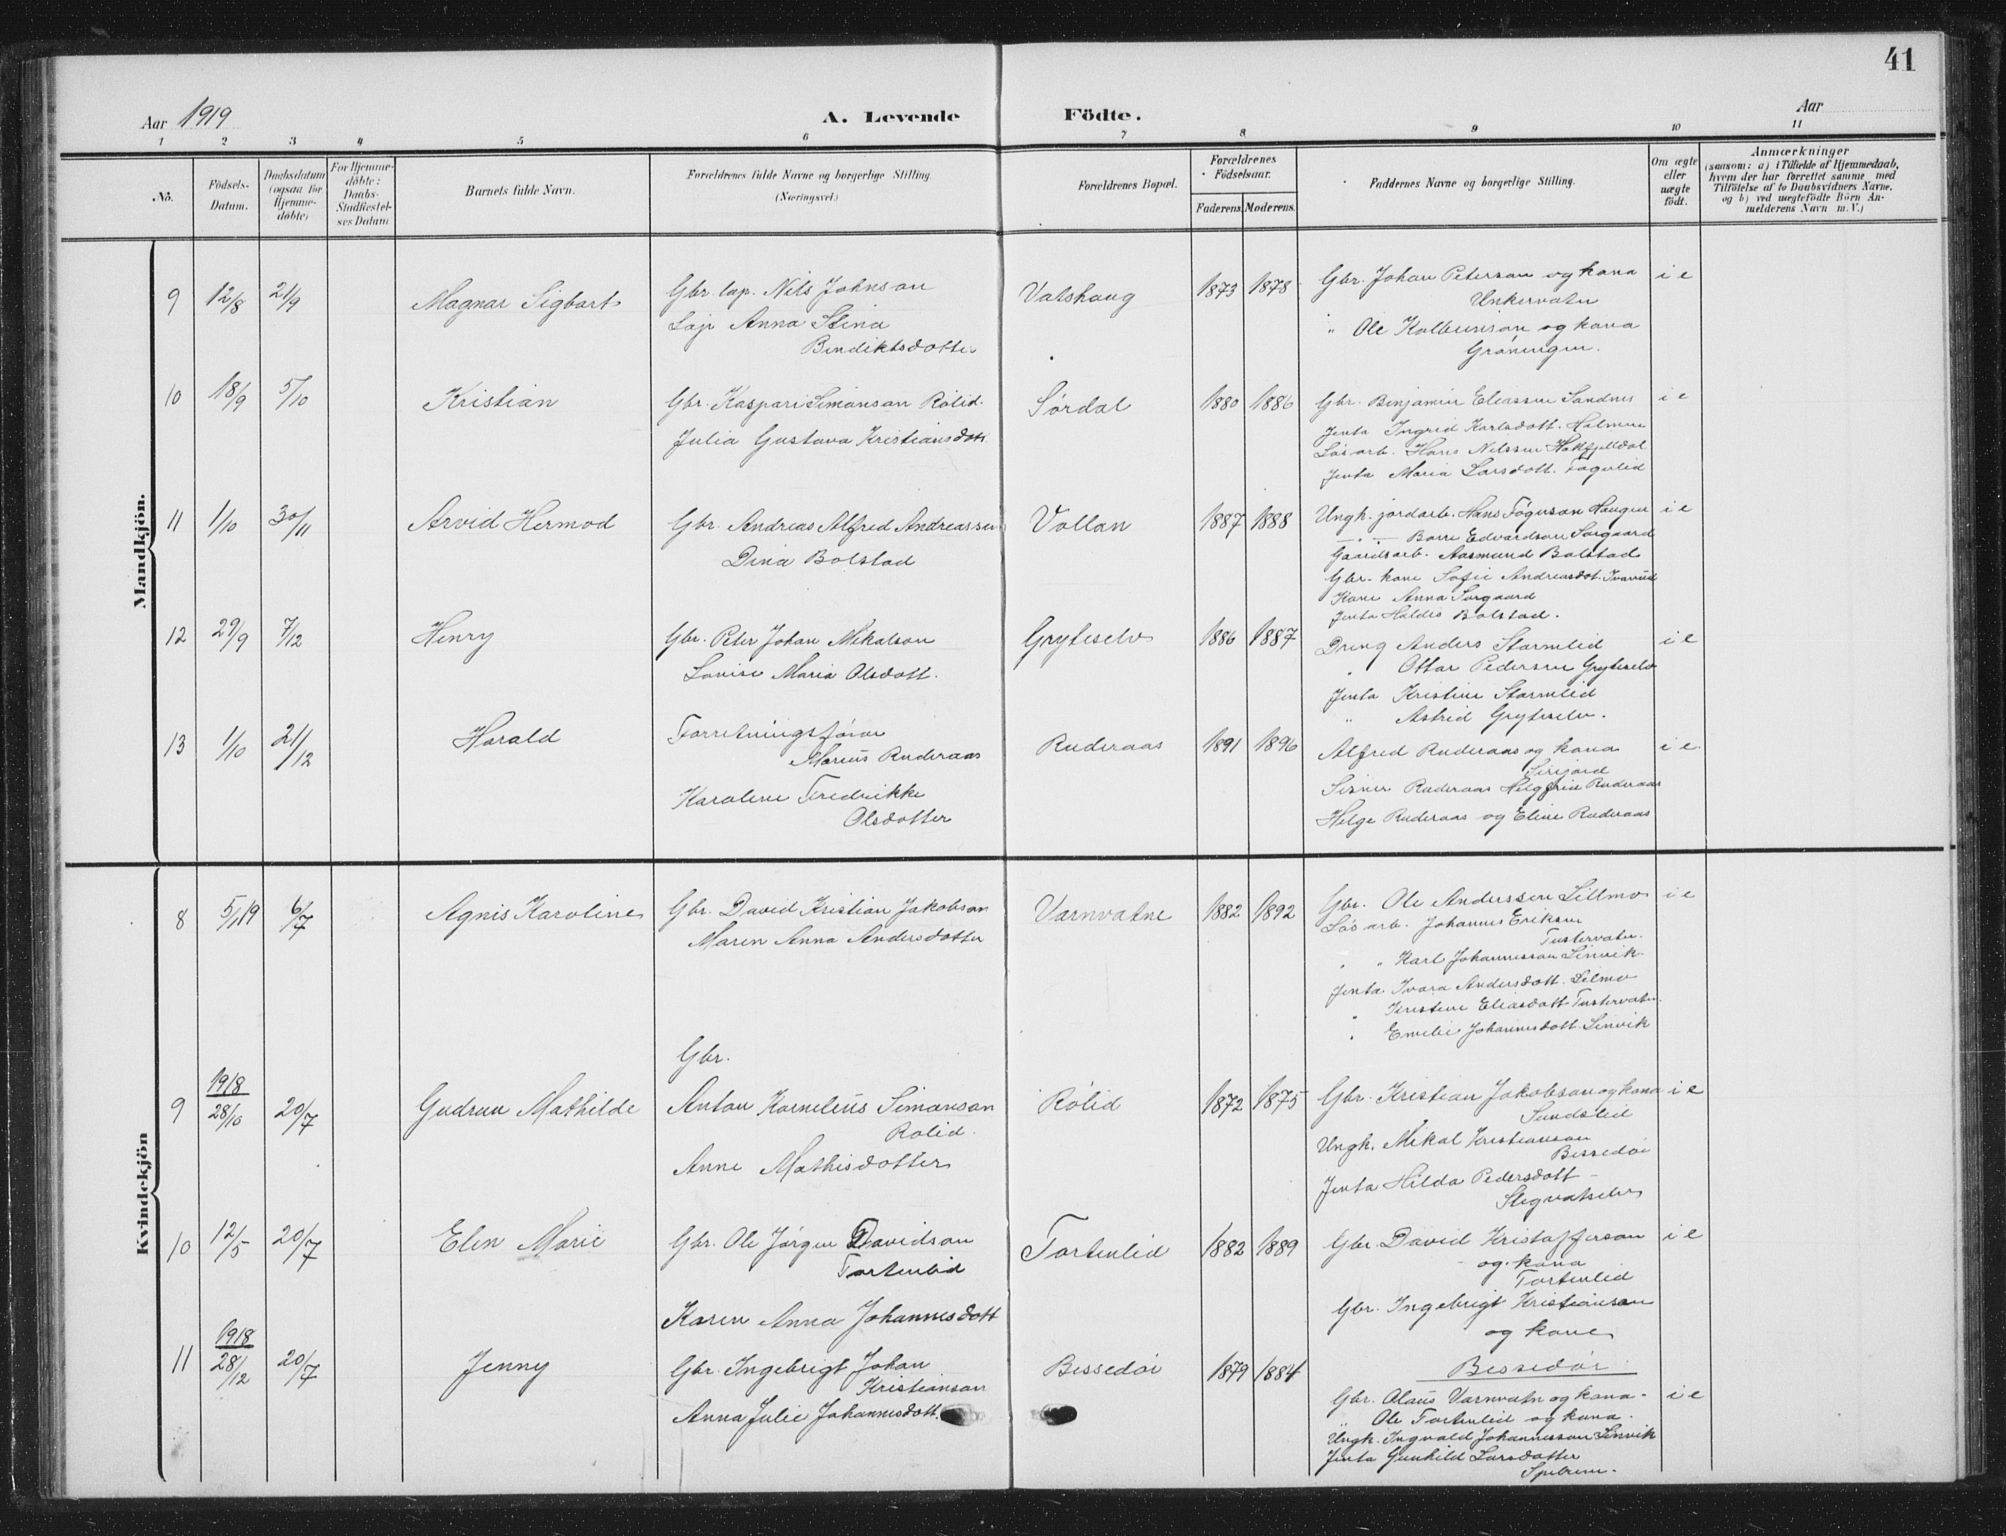 41
Aar 1919
A. Levende Födte.
Aar
1 2 3 4 5 6 7 8 9 10 11
No.
Fødsels-Datum.
Daabsdatum (ogsaa for Hjemmedöbte)
For Hjemmedöbte: Daabs-Stadfæstelses Datum
Barnets fulde Navn.
Forældrenes fulde Navne og borgerlige Stilling.
(Næringsvei.)
Forældrenes Bopæl.
Forældrenes Födselsaar.
Faderens. Moderens.
Faddernes Navne og borgerlige Stilling.
Om ægte eller uægte født.
Anmærkninger
(saasom: a) i Tilfælde af Hjemmedaab,
hvem der har forrettet samme, med
Tilföielse af to Daabsvidners Navne.
og b) ved uægtefödte Börn An-
melderens Navn m. V.)
Mandkjön.
9 12/8 21/9 Magnar Sigbart
Gbr. lap. Nils Johnson
Lap Anna Stina
Bendiktsdotter
Vatshaug 1873 1878
Gbr. Johan Peterson og kona
Unkervatn
" Ole Kolbeinson og kona
Grøningen.
i e
10 18/9 5/10 Kristian
Gbr. Kaspar Simonson Rølid.
Julia Gustava Kristiansdott.
Sørdal 1880 1886
Gbr. Benjamin Eliassen Sandnes
Jenta Ingrid Karlsdott. Holmen
Løsarb. Hans Nilssen Hatfjelldal
Jenta Maria Larsdott. Fagerlid
i e
11 1/10 30/11 Arvid Hermod
Gbr. Andreas Alfred Andreassen
Dina Bolstad
Vollan 1887 1888
Ungk. jordarb. Hans Haugen
Edvardson Sørgaard
Gaardsarb. Aasmund Bolstad
Gbr. kone Sofie Andreasdot.
Kone Anna Sørgaard
Jenta Haldis Bolstad.
i e
12 29/9 7/12 Henry
Gbr. Peter Johan Mikalson
Lovise Maria Olsdott.
Gryteselv 1886 1887
Dreng Anders Stormlid
" Ottar Pedersen Gryteselv
Jenta Kristine Stormlid
" Astrid Gryteselv.
i e
13 1/10 21/12 Harald
Forretningsfører
Marius Ruderaas
Karoline Fredrikke
Olsdotter
Ruderaas 1891 1896
Alfred Ruderaas og kona
Sirijord
Ruderaas Ruderaas
Helge Ruderaas og Eline Ruderaas
i e.
Kvindekjön
8 5/1 19 6/7 Agnis Karoline
Gbr. David Kristian Jakobson
Maren Anna Andersdotter
Varnvatne 1882 1892
Gbr. Ole Anderssen Lillmo
Løsarb. Johannes Eriksen
Tustervatn.
" " Karl Johannesson Sinvik
Jenta Ivara Andersdott. Lilmo
" Kristine Eliasdott Tustervatn.
" Emelie Johannesdott. Sinvik
i e
9 1918 28/10 20/7 Gudrun Mathilde
Gbr.
Anton Kornelius Simonson
Rølid.
Anne Mathisdotter
Rølid 1872 1875
Gbr. Kristian Jakobson og kona
Sundslid
Ungk. Mikal Kristianson
Bessedør
Jenta Hilda Pedersdott
Stegvatselv
i e
10 12/5 20/7 Elen Marie
Gbr. Ole Jørgen Davidson
Tortenlid
Karen Anna Johannesdott
Tortenlid 1882 1889
Gbr. David Kristofferson
og kona
Tortenlid
Gbr. Ingebrigt Kristianson
og kone
Bessedør
i e
11 1918 28/12 20/7 Jenny
Gbr. Ingebrigt Johan
Kristianson
Anna Julie Johannesdott.
Bessedør 1879 1884
Gbr. Olaus Varnvatn og kona
" Ole Tortenlid og kona.
Ungk. Ingvald Johannesson Sinvik
Jenta Gunhild Larsdotter
i e